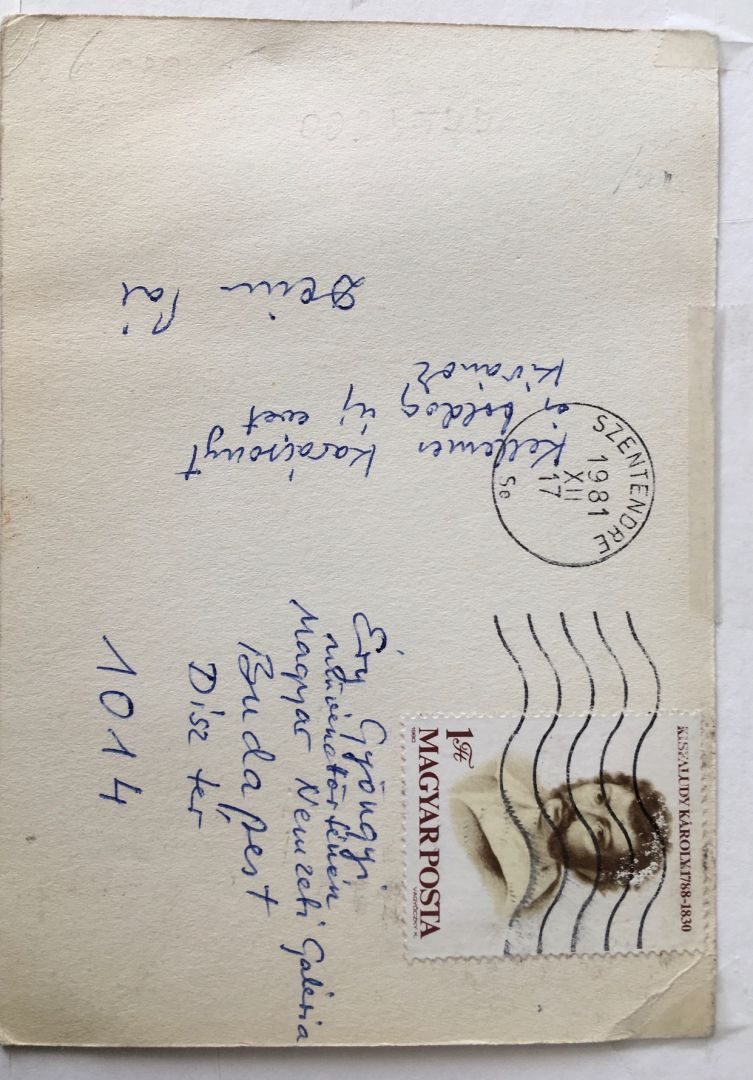 Kellemes
karácsonyt
és boldog új évet
kivánok
Deim Pál
SZENTENDRE
1981
XII
17
5e
KISFALUDY KÁROLY 1788-1830
1 Ft
MAGYAR POSTA
1980
VAGÓCZKY K.
Éry Gyöngyi
művészettörténész
Magyar Nemzeti Galéria
Budapest
Disz tér
1014